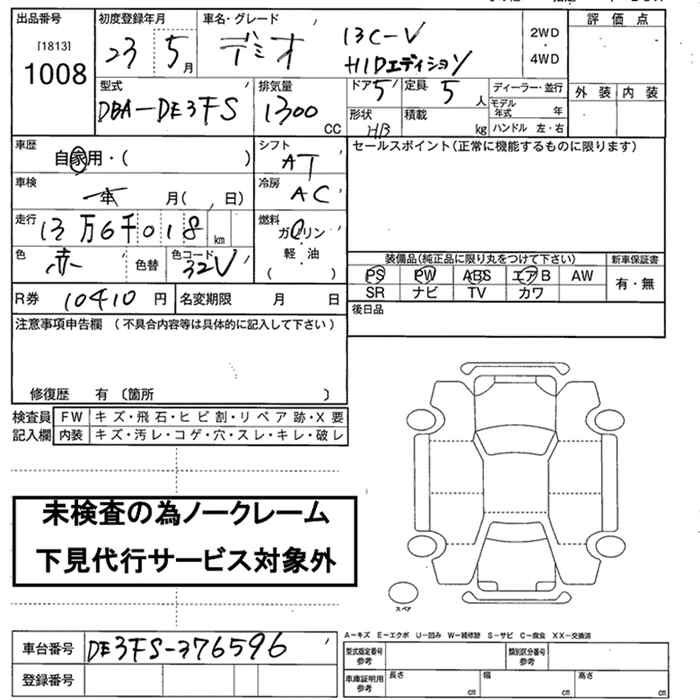 出品番号 初度登録年月 車名・グレード 評価点
[1813] 23 5月 デミオ 13C-V 2WD
1008 HIDエディション 4WD
型式 排気量 ドア 5 定員 5人 ディーラー・並行 外装 内装
DBA-DE3FS 1300CC 形状 HB 積載 kg モデル年式 年
ハンドル 左・右
車歴 シフト セールスポイント(正常に機能するものに限ります)
自家用・( ) AT
車検 冷房
年 月( 、 日) AC
走行 燃料
13万6千018km ガソリン・軽油
色 色替 色コード ( )
赤 32V
装備品(純正品に限り丸をつけて下さい) 新車保証書
PS PW ABS エアB AW 有・無
SR ナビ TV カワ
R券 10410円 名変期限 月 日 後日品
注意事項申告欄 (不具合内容等は具体的に記入して下さい)
修復歴 有 〔箇所 〕
検査員 FW キズ・飛石・ヒビ割・リペア跡・X要
記入欄 内装 キズ・汚レ・コゲ・穴・スレ・キレ・破レ
未検査の為ノークレーム
下見代行サービス対象外
スペア
車台番号 DE3FS-376596
登録番号
A-キズ E-エクボ U-凹み W-補修跡 S-サビ C-腐食 XX-交換済
型式指定番号 参考 類別区分番号 参考
車庫証明用 参考 長さ cm 幅 cm 高さ cm